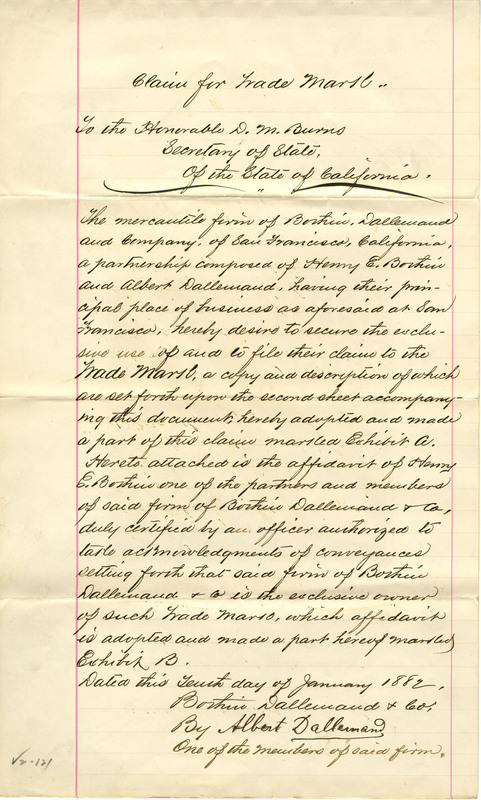 Claim for Trade Mark.
To the Honorable D. M. Burns
Secretary of State,
Of the State of California.
The mercantile firm of Bothin, Dallemand
and Company, of San Francisco, California,
a partnership composed of Henry E. Bothin
and Albert Dallemand, having their prin-
cipal place of business as aforesaid at San
Francisco, hereby desire to secure the exclu-
sive use of and to file their claim to the
Trade Mark, a copy and description of which
are set forth upon the second sheet accompany-
ing this document, hereby adopted and made
a part of this claim marked Exhibit A.
Hereto attached is the affidavit of Henry
E. Bothin one of the partners and members
of said firm of Bothin Dallemand & Co,
duly certified by an officer authorized to
take acknowledgments of conveyances
setting forth that said firm of Bothin
Dallemand & Co is the exclusive owner
of such Trade Mark, which affidavit
is adopted and made a part hereof marked
Exhibit B.
Dated this Tenth day of January 1882.
Bothin Dallemand & Co.
By Albert Dallemand
One of the members of said firm.
V2-121